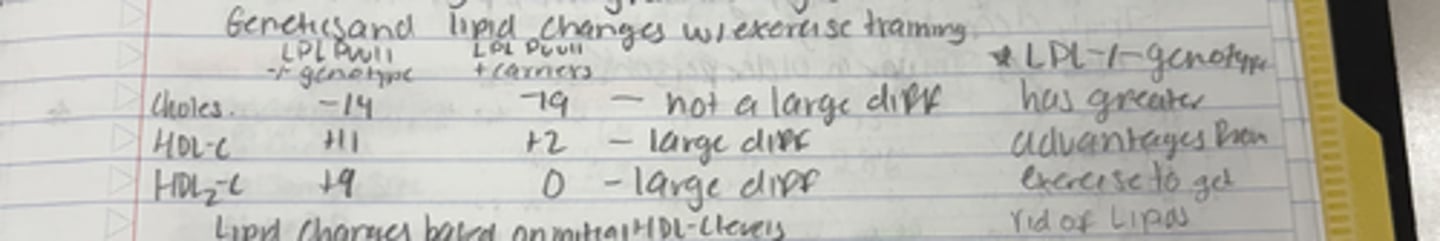 Genetics and lipid changes w/ exercise training
LPL PvuII -/- genotype
LPL PvuII + carriers
Choles. -14 -19 - not a large diff
HDL-C +11 +2 - large diff
HDL2-C +9 0 - large diff
* LPL -/- genotype
has greater
advantages from
exercise to get
rid of Lipids
Lipid changes based on initial HDL-C levels